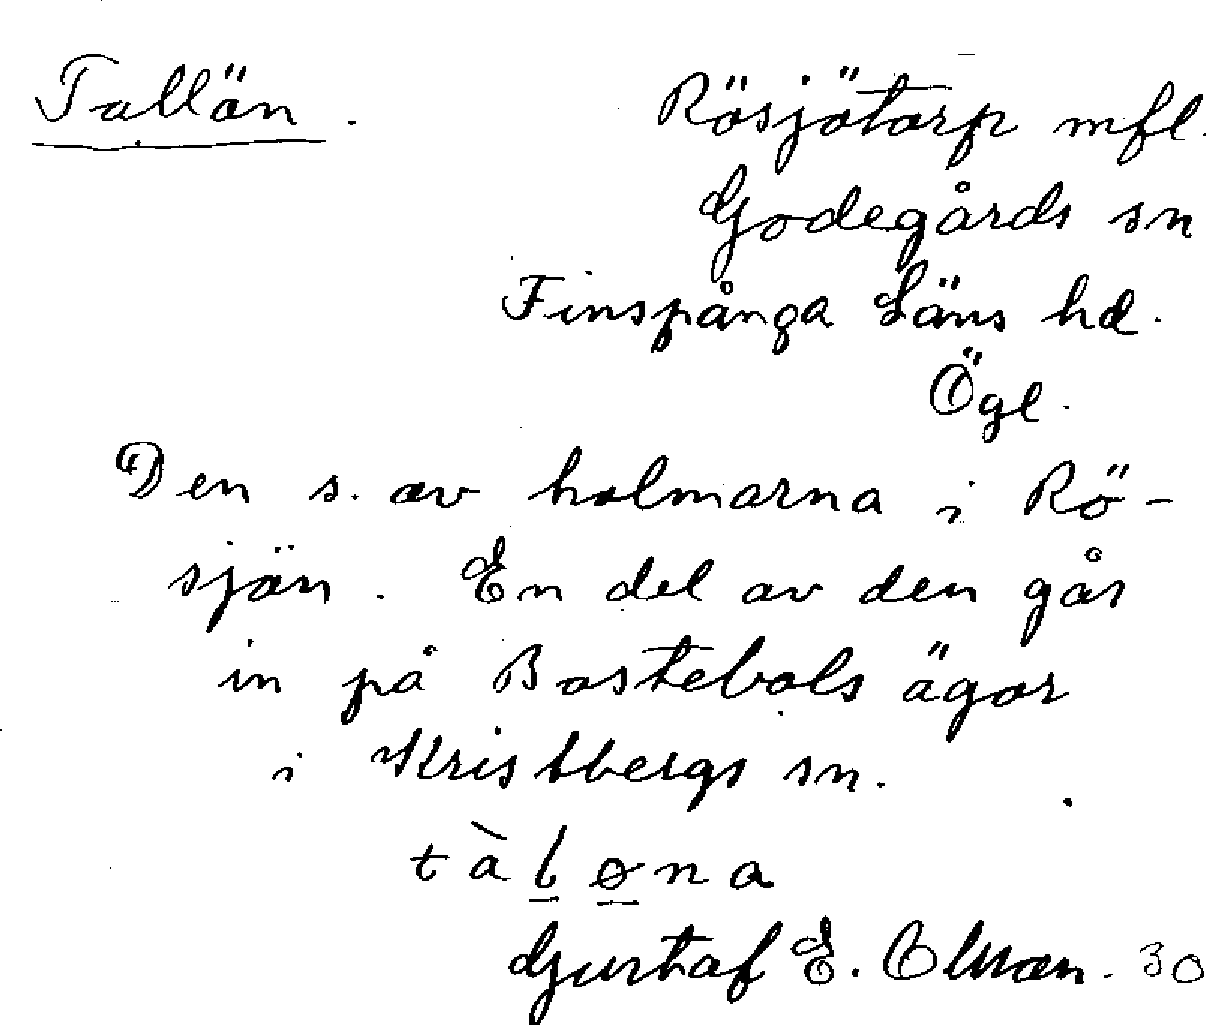 Tallön.
Rösjötorp mfl.
Godegårds sn
Finspånga Läns hd.
Ögl.
Den s. av holmarna i Rö-
sjön. En del av den går
in på Bostebols ägor
i Kristbergs sn.
tàløna
Gustaf E. Olsson. 30